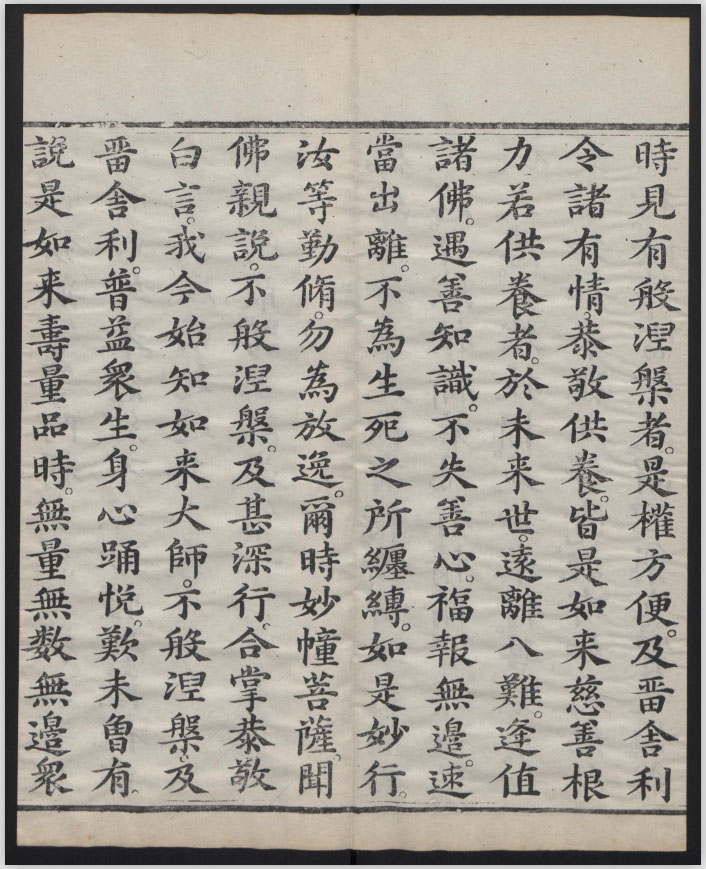 時見有般涅槃者。是權方便。及畱舎利
令諸有情。恭敬供養。皆是如来慈善根
力若供養者。於未来世。遠離八難。逢值
諸佛。遇善知識。不失善心。福報無邉。速
當出離。不為生死之所纏縛。如是妙行。
汝等勤脩。勿為放逸。爾時妙幢菩薩。聞
佛親說。不般涅槃。及甚深行。合掌恭敬
白言。我今始知如来大師。不般涅槃。及
畱舎利。普益衆生。身心踊悦。歎未曽有。
說是如来壽量品時。無量無数無邉衆